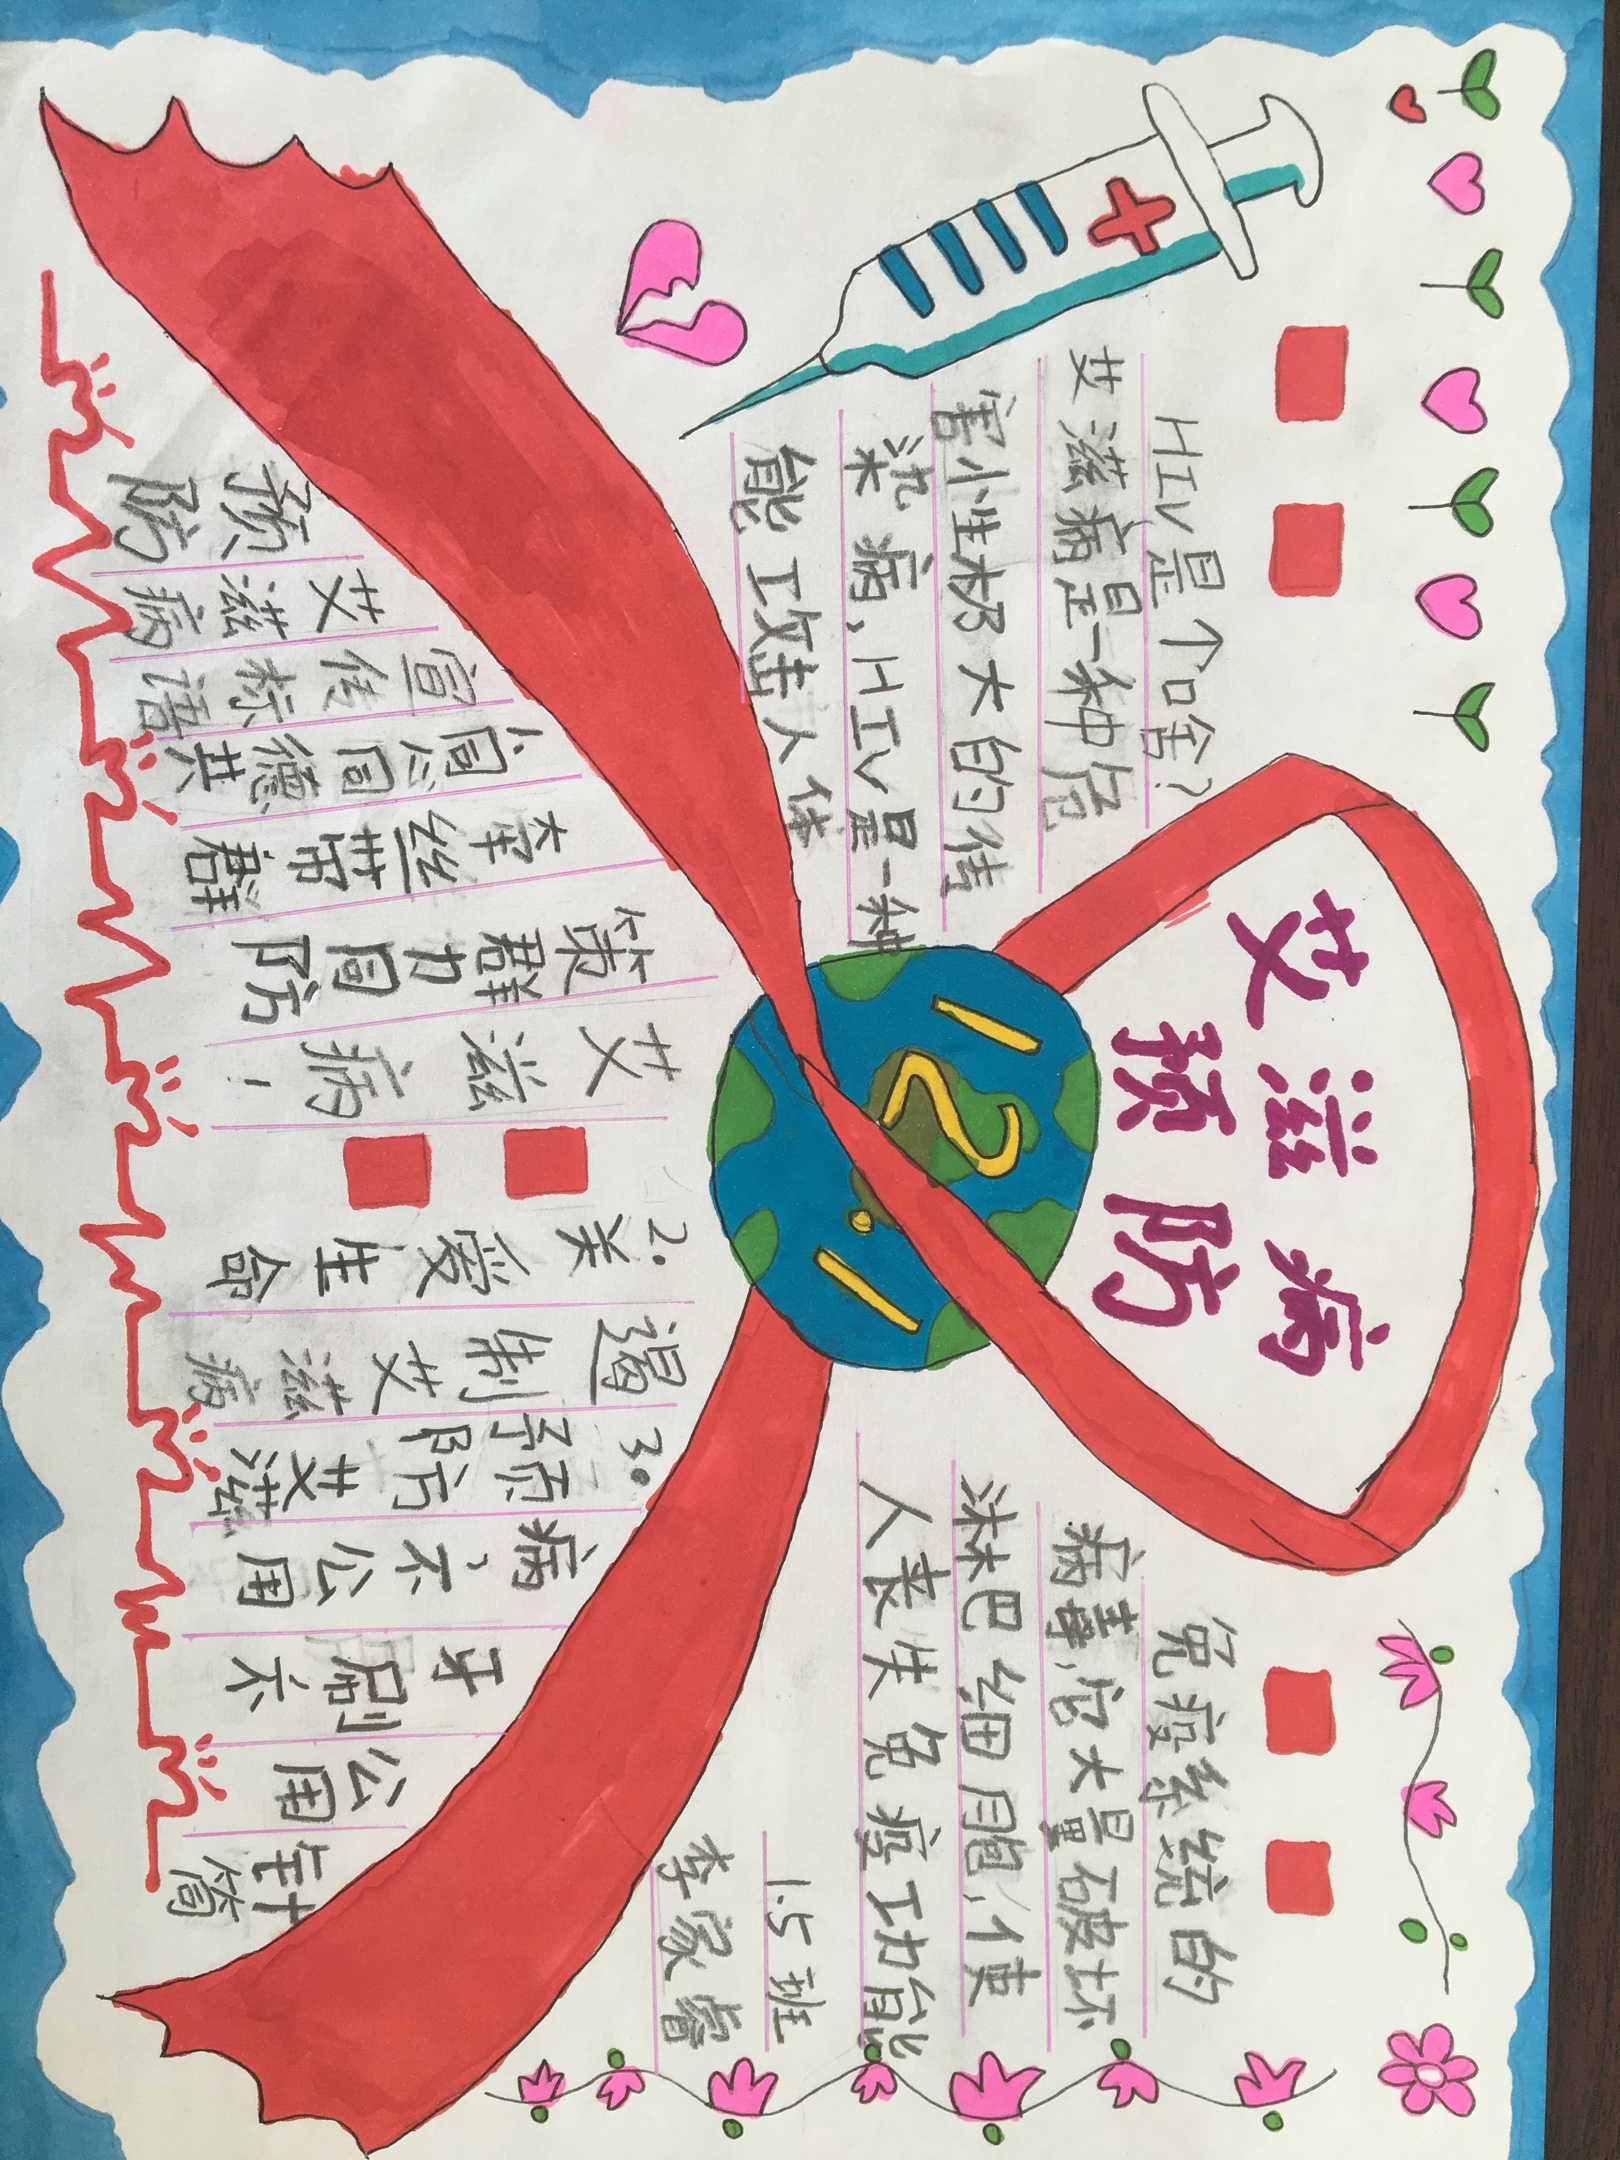 艾滋病
预防
12.1
HIV是个啥?
艾滋病是一种危
害性极大的传
染病,HIV是一种
能攻击人体
免疫系统的
病毒,它大量破坏
淋巴细胞,使
人丧失免疫功能
1.5班
李家睿
预防
艾滋病
宣传标语
同德共
牵丝带群
策群力同防
艾滋病!
2.关爱生命
遏制艾滋病
3.预防艾滋
病,不公用
牙刷不
公用针筒